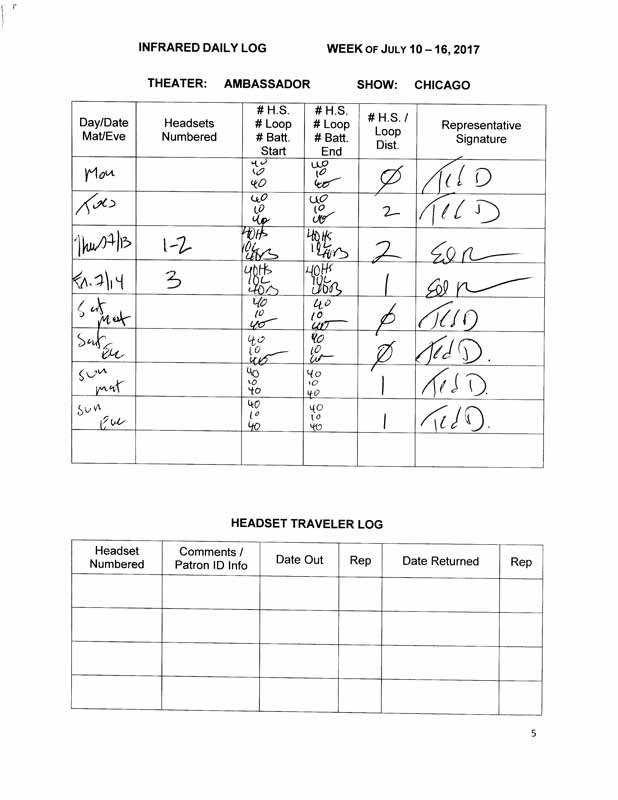 INFRARED DAILY LOG WEEK OF JULY 10 – 16, 2017
THEATER: AMBASSADOR SHOW: CHICAGO
Day/Date Mat/Eve Headsets Numbered # H.S. # Loop # Batt. Start # H.S. # Loop # Batt. End # H.S. / Loop Dist. Representative Signature
Mon 40 10 40 40 10 40 Ø Ted D
Tues 40 10 40 40 10 40 2 Ted D
Thurs 7/13 1-2 40HS 10L 40B 40HS 10L 40B 2 Ed R
Fri. 7/14 3 40HS 10L 40B 40HS 10L 40B 1 Ed R
Sat Mat 40 10 40 40 10 40 Ø Ted D
Sat Eve 40 10 40 40 10 40 Ø Ted D.
Sun mat 40 10 40 40 10 40 1 Ted D.
Sun Eve 40 10 40 40 10 40 1 Ted D.
HEADSET TRAVELER LOG
Headset Numbered Comments / Patron ID Info Date Out Rep Date Returned Rep
5